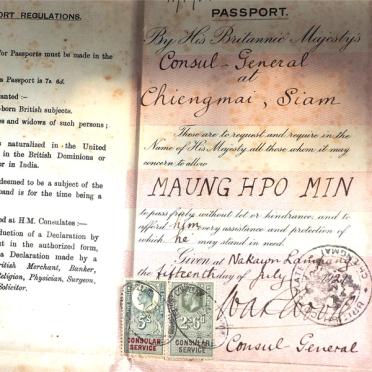 ORT REGULATIONS.
for Passports must be made in the
s Passport is 7s 6d.
anted :—
-born British subjects.
es and widows of such persons ;
s naturalized in the United
in the British Dominions or
or in India.
deemed to be a subject of the
and is for the time being a
ed at H.M. Consulates :—
duction of a Declaration by
ut in the authorized form,
a Declaration made by a
ritish Merchant, Banker,
Religion, Physician, Surgeon,
Solicitor.
PASSPORT.
By His Britannic Majesty's
Consul-General
at
Chiengmai, Siam
These are to request and require in the
Name of His Majesty all those whom it may
concern to allow
MAUNG HPO MIN
to pass freely without let or hindrance, and to
afford him every assistance and protection of
which he may stand in need.
Given at Nakawn Lampang
the fifteenth day of July
Consul General
5s 2s6d
CONSULAR SERVICE CONSULAR SERVICE